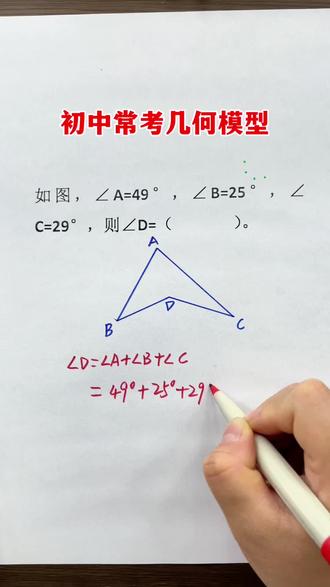 初中常考几何模型
如图，∠A=49°，∠B=25°，∠
C=29°，则∠D=（　　）。
A
D
B
C
∠D=∠A+∠B+∠C
=49°+25°+29